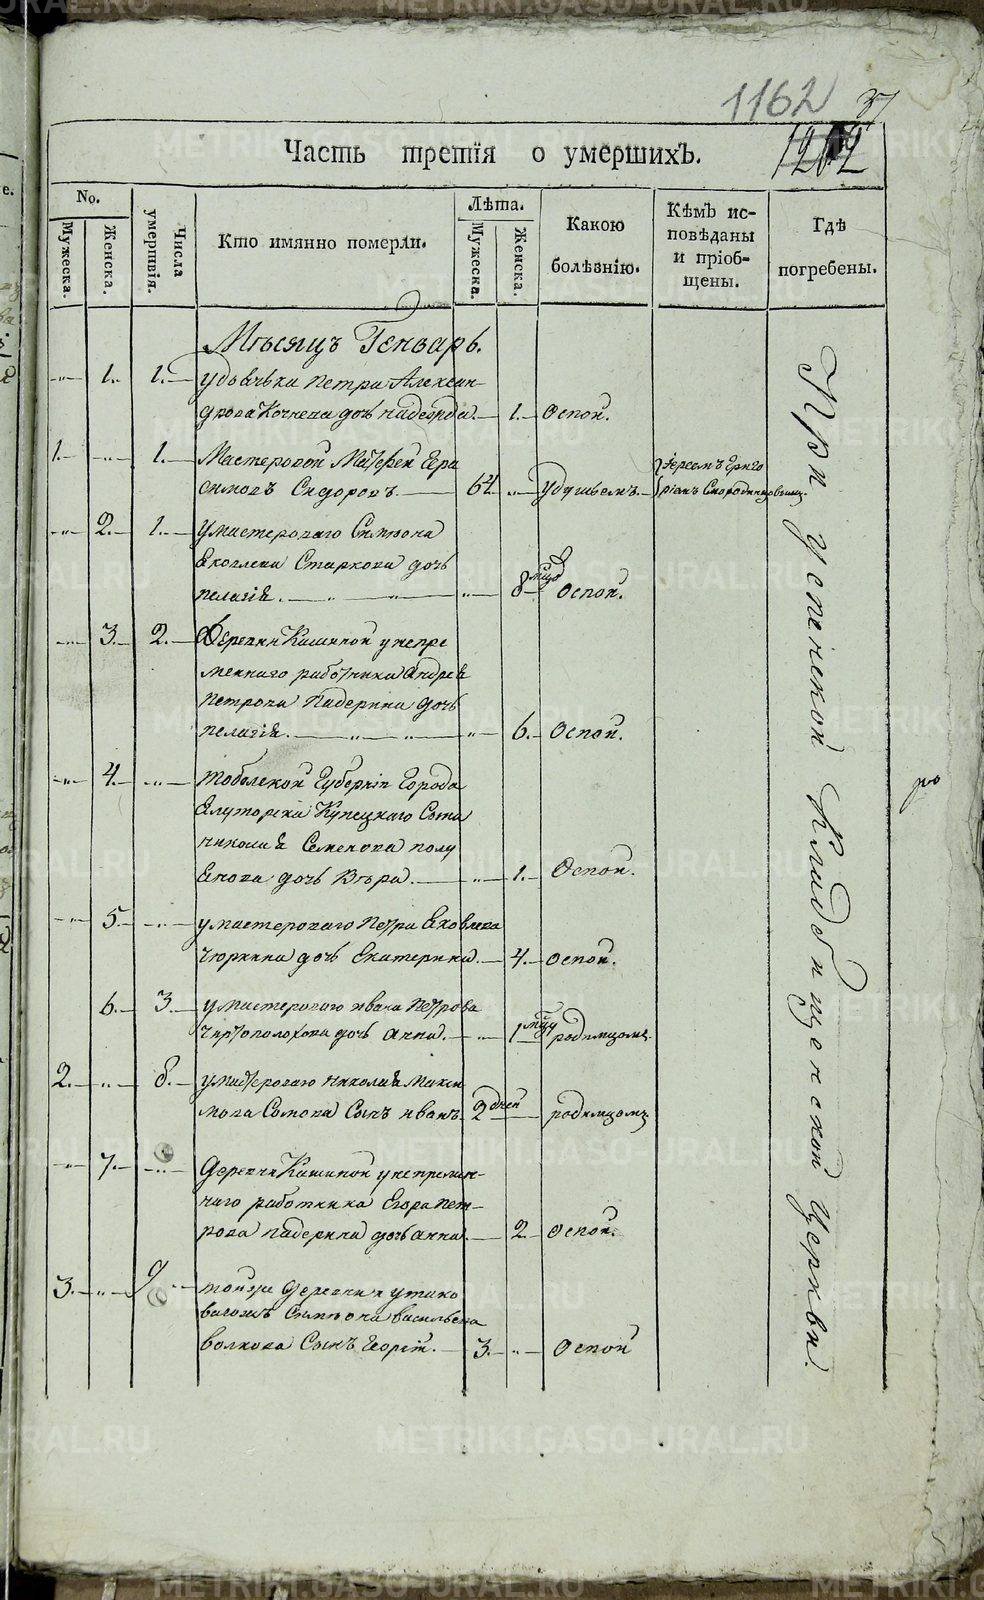 1162
37
1202
Часть третїя о умершихъ.
No.
Мужеска.
Женска.
Числа умершвія.
Кто имянно померли.
Лѣта.
Мужеска.
Женска.
Какою болѣзнію.
Кѣмъ исповѣданы и пріобщены.
Гдѣ погребены.
Мѣсяцъ Генварь.
1. 1. у вдовика Петра Алексан-
дрова Кочнева дочь надежда. 1. Оспой.
1. 1. Мастеровой Матфей Гера
симовъ Сидоровъ. 62. удушьемъ.
Іереемъ
2. 1. у мастероваго Симиона
Яковлева Старкова дочь
пелагія. 8 мцов Оспой.
3. 2. Деревни Кашиной у непре
меннаго работника Андрея
Петрова Падерина дочь
пелагія. 6. Оспой.
4. Тоболской Губерніи Города
Ялуторска Купецкаго Сына
николая Семенова полу
Янова дочь Вѣра. 1. Оспой.
5. у мастероваго Петра Яковлева
Чюркина дочь Екатерина. 4. оспой.
6. 3. у мастероваго ивана Петрова
Чертополохова дочь Анна. 1 мцу родимцомъ.
2. 8. у мастероваго николая Макси
мова Сомова Сынъ иванъ 2 дней родимцомъ
7. Деревни Кашиной у непремен-
наго работника Егора Пет-
рова падерина дочь анна. 2. Оспой.
3. 9. той же деревни
Симиона васильева
волкова Сынъ Георгій. 3. Оспой
При успенской Кладбищенской Церкви.
METRIKI.GASO-URAL.RU